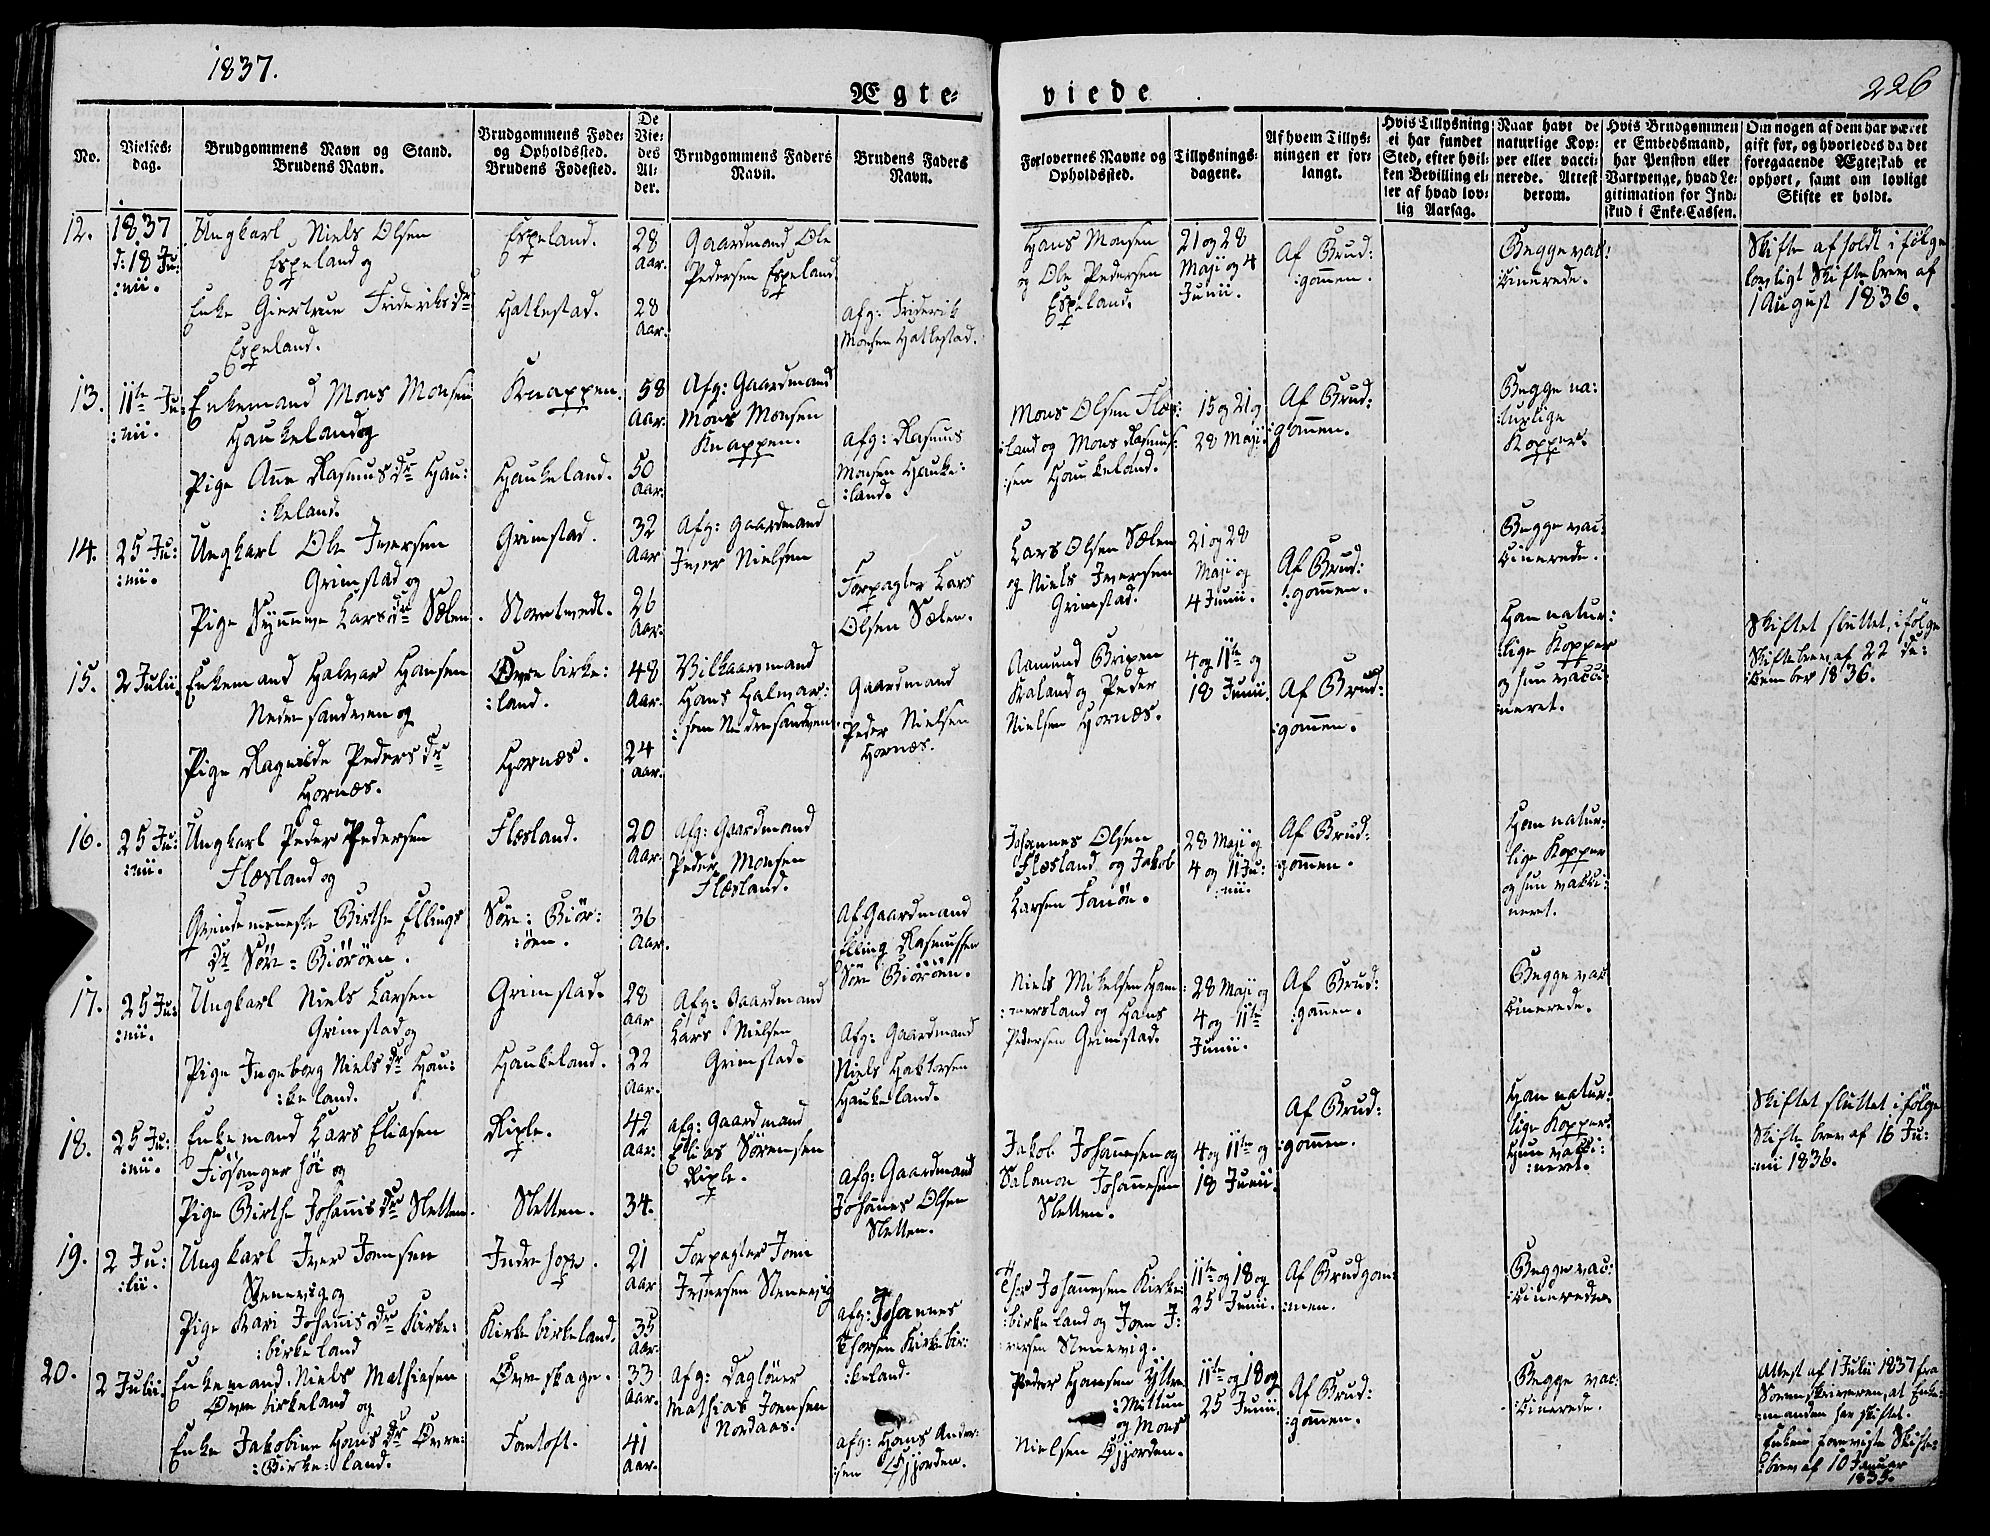 1837.
226
Ægte-
viede
No.
Vielses-
dag.
Brudgommens Navn og Stand.
Brudens Navn.
Brudgommens Føde-
og Opholdssted.
Brudens Fødested.
De
Vie-
des
Al-
der.
Brudgommens Faders
Navn.
Brudens Faders
Navn.
Forlovernes Navne og
Opholdssted.
Tillysnings-
dagene.
Af hvem Tillys-
ningen er for-
langt.
Hvis Tillysning
ei har fundet
Sted, efter hvil-
ken Bevilling el-
ler af hvad lov-
lig Aarsag.
Naar havt de
naturlige Kop-
per eller vacci-
nerede. Attest
derom.
Hvis Brudgommen
er Embedsmand,
har Pension eller
Vartpenge, hvad Le-
gitimation for Ind-
skud i Enke-Cassen.
Om nogen af dem har været
gift før, og hvorledes da det
foregaaende Ægteskab er
ophørt, samt om lovligt
Skifte er holdt.
12.
1837
d: 18 Ju:
:nii.
Ungkarl Niels Olsen
Espeland og
Enke Giertrue Frideriks dr
Espeland.
Espeland.
Hatlestad.
28
Aar.
28
Aar.
Gaardmand Ole
Pedersen Espeland.
Afg: Friderik
Monsen Hatlestad.
Hans Monsen
og Ole Pedersen
Espeland.
21 og 28
Maji og 4
Junii.
Af Brud:
:gommen.
Begge vac:
:cinerede.
Skifte afholdt i følge
lovligt Skiftebrev af
1 August 1836.
13.
11te Ju:
:nii.
Enkemand Mons Monsen
Haukeland og
Pige Ane Rasmus dr Hau:
:keland.
Knappen.
Haukeland.
58
Aar.
50
Aar.
Afg: Gaardmand
Mons Monsen
Knappen.
Afg: Rasmus
Monsen Hauke:
:land.
Mons Olsen Flæs:
:land og Mons Rasmus:
:sen Haukeland.
15 og 21 og
28 Maji.
Af Brud:
:gommen.
Begge na:
:turlige
Kopper.
14.
25 Ju:
:nii.
Ungkarl Ole Iversen
Grimstad og
Pige Synneve Lars dr Sælen.
Grimstad.
32
Aar
26
Aar.
Afg: Gaardmand
Iver Nielsen
Forpagter Lars
Olsen Sælen.
Lars Olsen Sælen
og Niels Iversen
Grimstad.
21 og 28
Maji og
4 Junii.
Af Brud:
:gommen.
Begge vac:
cinerede.
15.
2 Julii.
Enkemand Halvor Hansen
Nedre sandven og
Pige Ragnilde Peders dr
Hornæs.
Øvre birke:
:land.
Hornæs.
48
Aar.
24
Aar.
Vilkaarsmand
Hans Halvor:
:sen Nedresandven.
Gaardmand
Peder Nielsen
Hornæs.
Aamund
Kaland og Peder
Nielsen Hornæs.
4 og 11te og
18 Junii.
Af Brud:
:gommen.
Han natur:
:lige Kopper
og hun vacci:
:neret.
Skiftet sluttet, i følge
Skiftebrev af 22 De:
cember 1836.
16.
25 Ju:
:nii.
Ungkarl Peder Pedersen
Flæsland og
Qvindemenneske Birthe Ellings
dr Søre-Biørøen.
Flæsland.
Søre-Biør:
:øen.
20
Aar.
36
Aar.
Afg: Gaardmand
Peder Monsen
Flæsland.
Af Gaardmand
Elling Rasmussen
Søre Biørøen.
Johannes Olsen
Flæsland og Jakob
Larsen Fanöe.
28 Maji og
4 og 11 Ju:
:nii.
Af Brud:
:gommen.
Han natur:
lige Kopper
og hun vacci:
neret.
17.
25 Ju:
:nii.
Ungkarl Niels Larsen
Grimstad og
Pige Ingeborg Niels dr Hau:
:keland.
Grimstad.
Haukeland.
28
Aar
22
Aar.
Afg: Gaardmand
Lars Nielsen
Grimstad.
Afg: Gaardmand
Niels Haktorsen
Haukeland.
Niels Mikelsen Ham:
:mersland og Hans
Pedersen Grimstad.
28 Maji og
4 og 11te
Junii.
Af Brud:
:gommen.
Begge vac
cinerede.
18.
25 Ju:
:nii.
Enkemand Lars Eliasen
Fiøsangerhøi og
Pige Birthe Johannis dr Sletten.
Riple.
Sletten.
42
Aar:
34.
Afg: Gaardmand
Elias Sørensen
Riple.
Afg: Gaardmand
Johannes Olsen
Sletten.
Jakob Johannesen og
Salomon Johannesen
Sletten.
4 og 11te og
18 Junii.
Af Brud:
:gommen.
Han natur:
lige Kopper.
Hun vacci:
:neret.
Skiftet sluttet i følge
Skiftebrev af 16 Ju:
:nii 1836.
19.
2 Ju:
:lii.
Ungkarl Iver Joensen
Stenevig og
Pige Kari Johannis dr Kirke:
:birkeland
Indre hope.
Kirke birkeland.
21
Aar
35
Aar.
Forpagter Joen
Iversen Stenevig
Afg: Johannes
Thorsen Kirkebir:
:keland.
Thor Johannesen Kirke:
:birkeland og Joen I:
versen Stenevig.
11te og 18 og
25 Junii.
Af Brudgom:
:men.
Begge vac:
:cinerede.
20.
2 Julii.
Enkemand Niels Mathiasen
Øvre birkeland og
Enke Jakobine Hans dr Øvre:
:Birke:land.
Øvre skage.
Fantoft.
33
Aar.
41
Aar.
Afg: Dagløner
Mathias Joensen
Nordaas.
Afg: Hans Ander:
:sen Øjjorden.
Peder Hansen Yttre
:Mittun
og Mons
Nielsen Øjjorden.
11te og 18 og
25 Junii.
Af Brud:
:gommen.
Begge vac:
:cinerede.
Attest af 1 Julii 1837 fra
Sorenskriveren, at Enke:
:manden har skiftet.
Enken foreviste Skifte:
:brev af 10 Januar
1835.